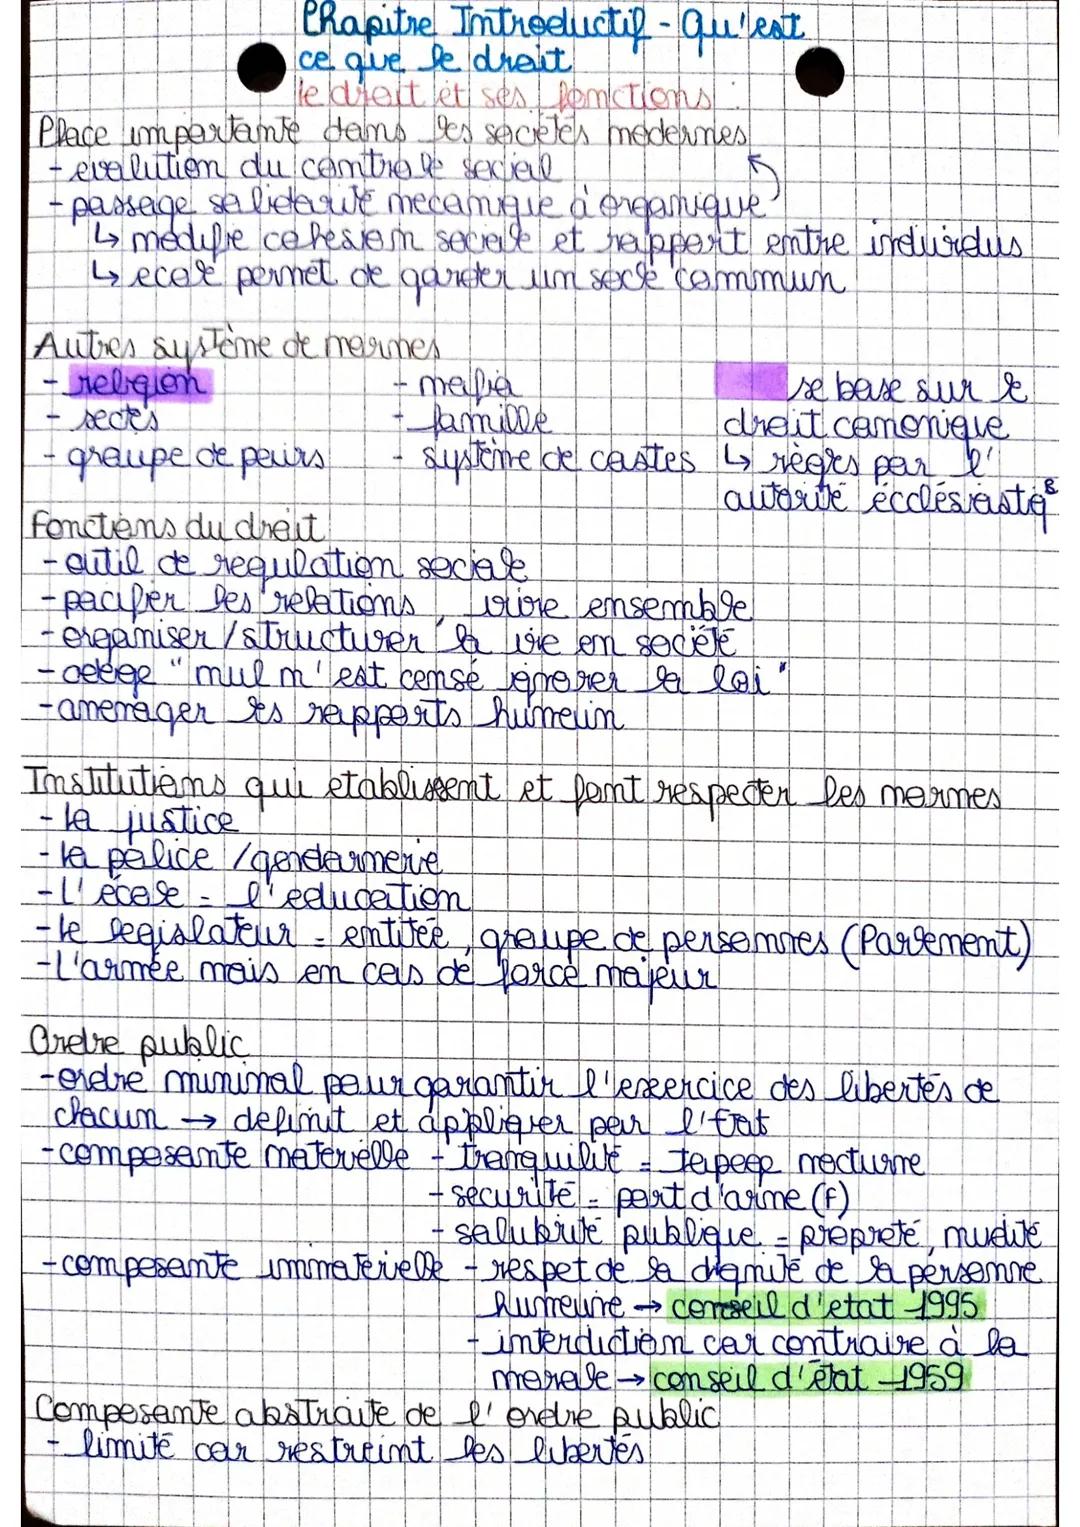 Chapitre Introductif - Qu'est
ce que le droit
le droit et ses fonctions :
Place importante dans les sociétés modernes
- evolution du controle social
- passage solidarité mecanique à organique
↳ modifie cohesion sociale et rapport entre individus
↳ ecole permet de garder un socle commun
Autres système de normes
- religion
- sectes
- groupe de pairs
- mafia
- famille
- système de castes
se base sur le
droit canonique
↳ règles par l'
autorité écclésiastiqe
Fonctions du droit
- outil de regulation sociale
- pacifier les relations, vivre ensemble
- organiser / structurer la vie en société
- adage " nul n'est censé ignorer la loi "
- amenager les rapports humain
Institutions qui etablissent et font respecter les normes
- la justice
- la police / gendarmerie
- L'école = l'education
- le legislateur = entitée, groupe de personnes (Parlement)
- L'armée mais en cas de force majeur
Ordre public
- ordre minimal pour garantir l'exercice des libertés de
chacun → definit et appliquer par l'Etat
- composante materielle - tranquilité = tapage nocturne
- securité = port d'arme (f)
- salubrité publique = propreté, nudité
- composante immaterielle - respet de la dignité de la personne
humaine → conseil d'etat 1995
- interdiction car contraire à la
morale → conseil d'état 1959
Composante abstraite de l'ordre public
- limité car restreint les libertés